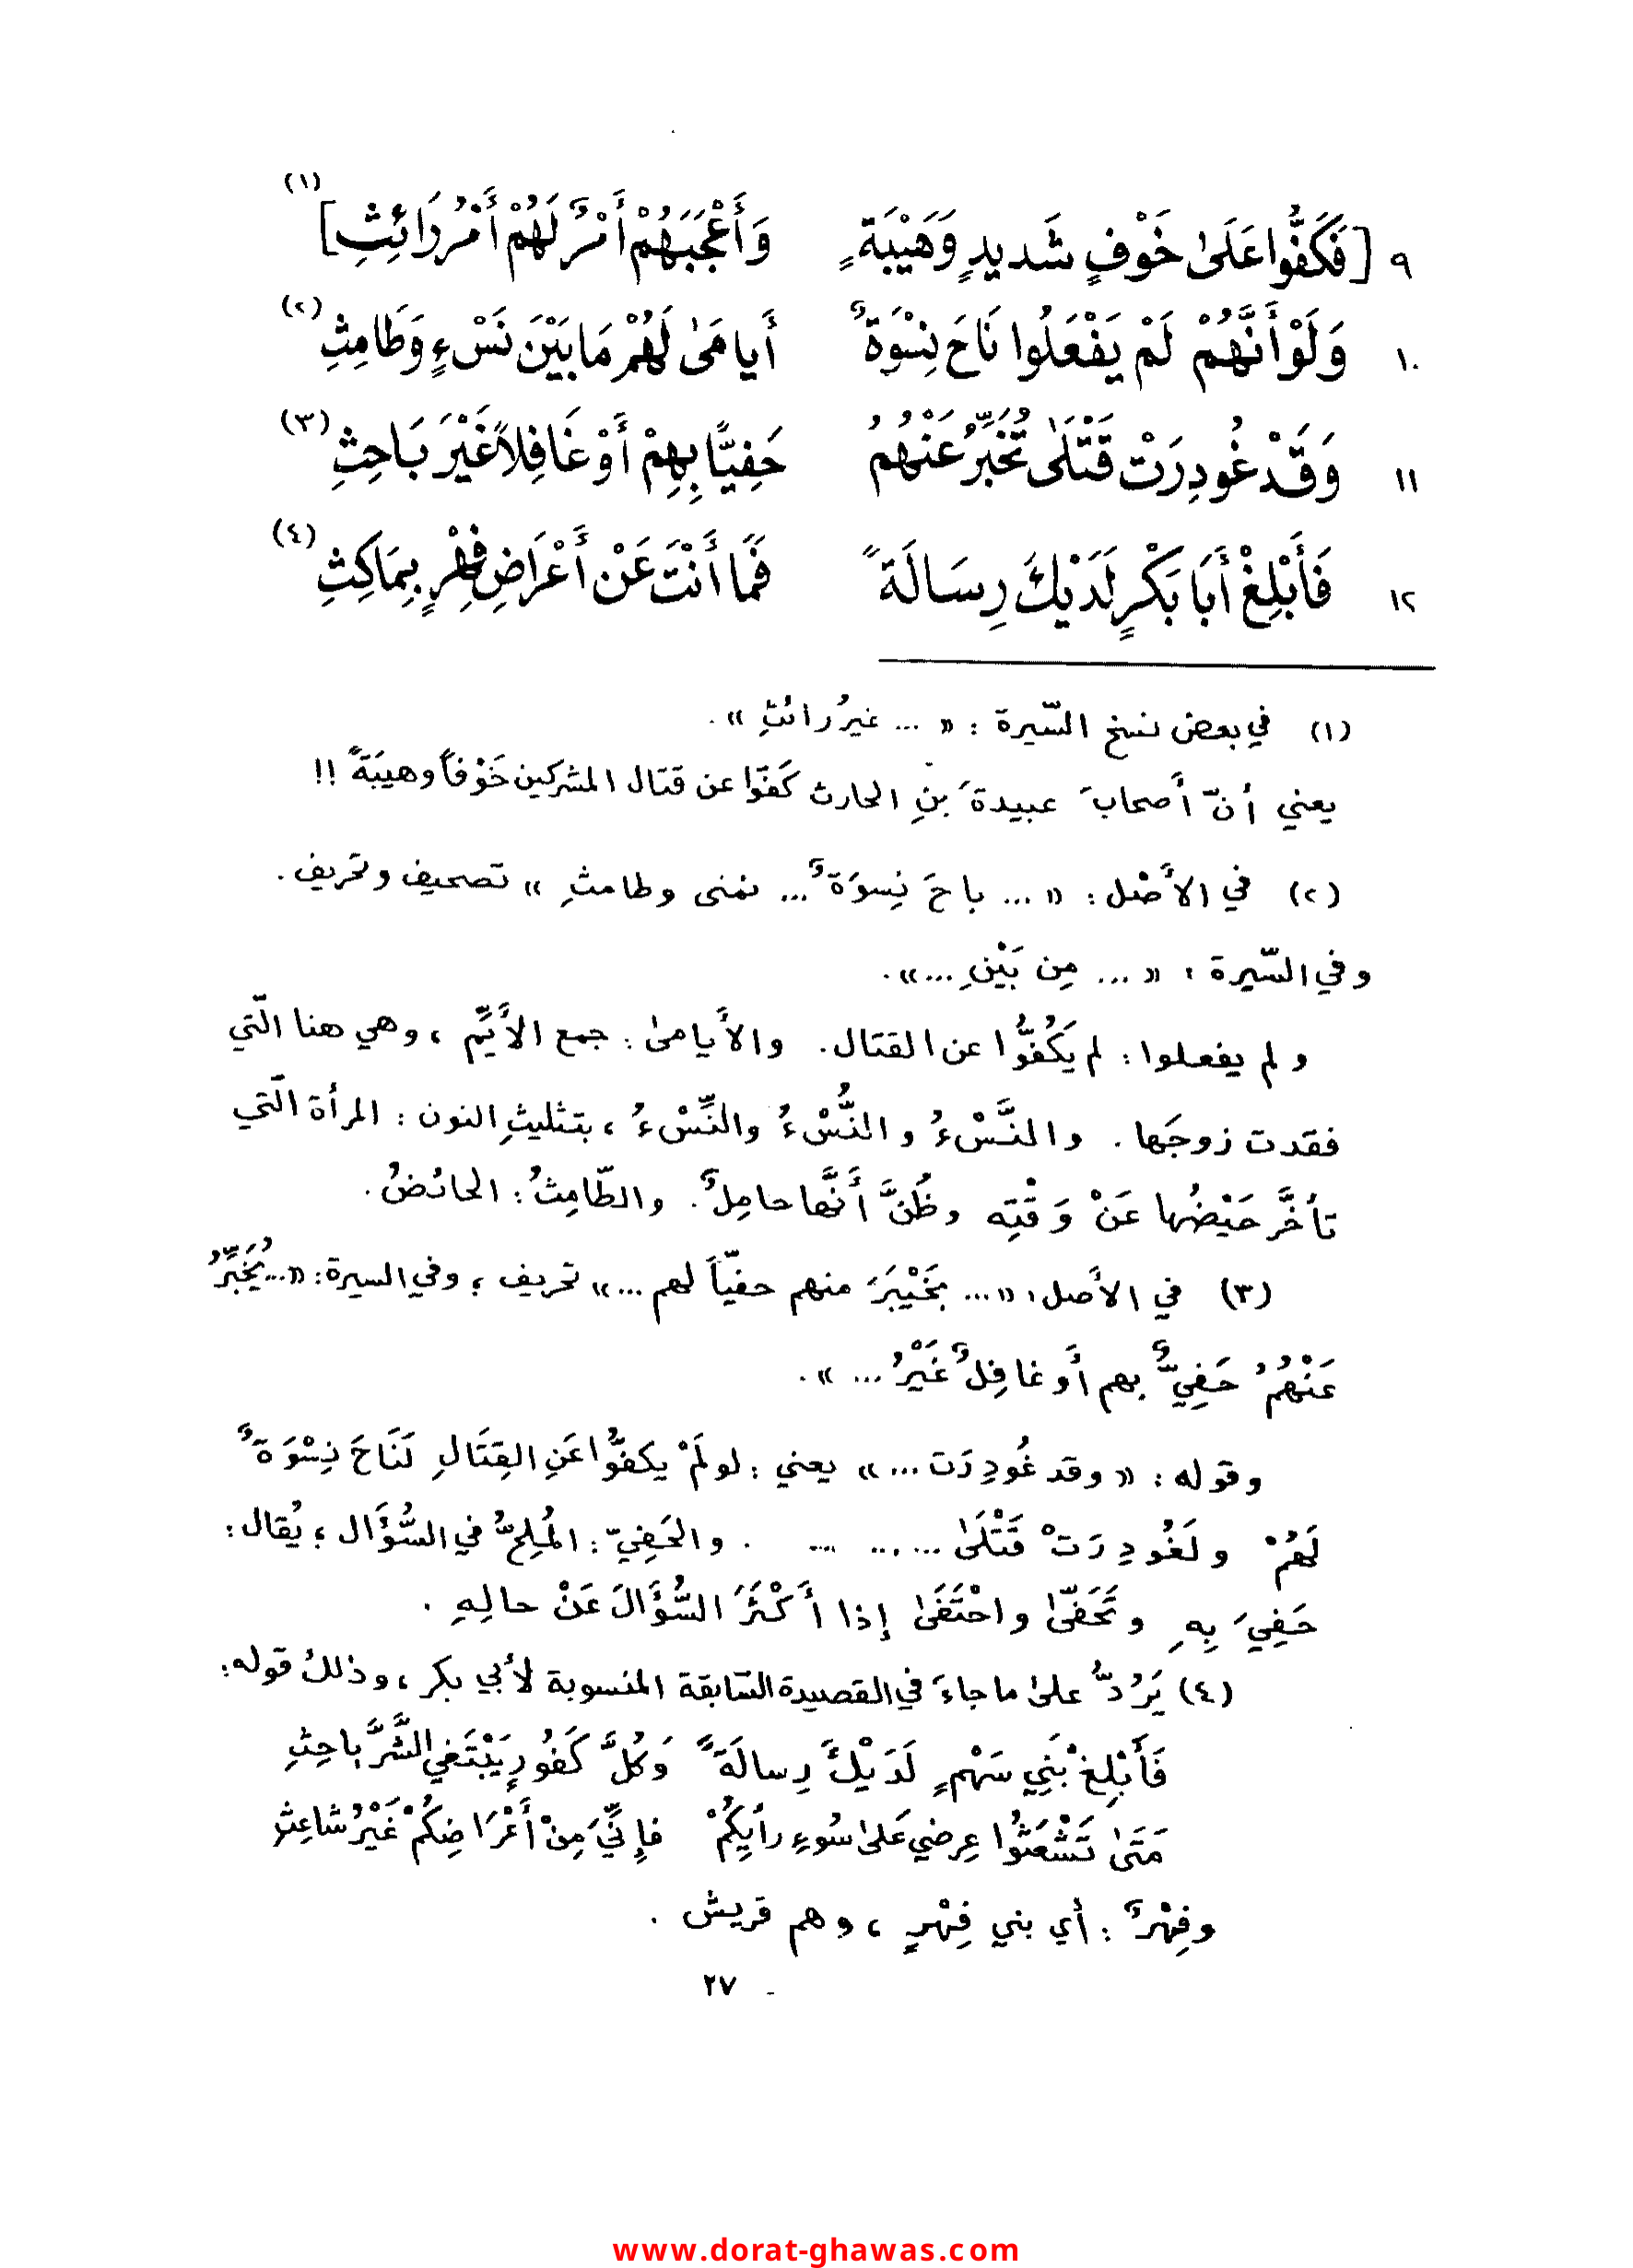 ٩ [فَكَفُّوا عَلَىٰ خَوْفٍ شَدِيدٍ وَهَيْبَةٍ وَأَعْجَبَهُمْ أَمْرٌ لَهُمْ أَمْرُ رَائِثِ] (١)
١٠ وَلَوْ أَنَّهُمْ لَمْ يَفْعَلُوا نَاحَ نِسْوَةٌ أَيامَىٰ لَهُمْ مَا بَيْنَ نَسْءٍ وَطَامِثِ (٢)
١١ وَقَدْ غُودِرَتْ قَتْلَىٰ تُخَبِّرُ عَنْهُمُ حَفِيًّا بِهِمْ أَوْ غَافِلاً غَيْرَ بَاحِثِ (٣)
١٢ فَأَبْلِغْ أَبَا بَكْرٍ لَدَيْكَ رِسَالَةً فَمَا أَنْتَ عَنْ أَعْرَاضِ فِهْرٍ بِمَاكِثِ (٤)
(١) في بعض نسخ السّيرة : « ... غيرُ رائثِ » .
يعني أنّ أصحابَ عبيدةَ بنِ الحارث كَفّوا عن قتال المشركين خَوْفاً وهيبَةً !!
(٢) في الأصْل : « ... باحَ نِسوَةٌ ... نمنى وطامثِ » تصحيف وتحريف .
وفي السّيرة : « ... مِن بَيْنِ ... » .
ولم يفعلوا : لم يَكُفُّوا عن القتال . والأيامىٰ : جمع الأَيِّم ، وهي هنا الّتي
فقدت زوجَها . والنَّسْءُ والنُّسْءُ والنِّسْءُ ، بتثليثِ النون : المرأة الّتي
تأخَّر حَيْضُها عَنْ وَقْتِه وظُنَّ أَنَّها حامِلٌ . والطّامِثُ : الحائضُ .
(٣) في الأصل : « ... بِخَيْبَرَ منهم حفيّاً لهم ... » تحريف ؛ وفي السيرة : « ... يُخَبِّرُ
عَنْهُمُ حَفِيٌّ بهم أَو غافِلٌ غَيْرُ ... » .
وقوله : « وقد غُودِرَت ... » يعني : لو لَمْ يكفُّوا عَنِ القِتَالِ لَنَاحَ نِسْوَةٌ
لَهُمْ ولَغُودِرَتْ قَتْلَىٰ ... ... ... . والحَفِيّ : المُلِحُّ في السُّؤَال ؛ يُقال :
حَفِيَ بِهِ وتَحَفّىٰ واحْتَفَىٰ إذا أَكْثَرَ السُّؤَالَ عَنْ حالِهِ .
(٤) يَرُدُّ علىٰ ما جاءَ في القصيدة السّابقة المنسوبة لأبي بكر ، وذلك قوله :
فَأَبْلِغْ بَنِي سَهْمٍ لَدَيْكَ رِسالَةً وَكُلَّ كَفُورٍ يَبْتَغي الشَّرَّ باحِثِ
مَتَىٰ تَشْعَثُوا عِرضي عَلىٰ سُوءِ رأيِكُمْ فإِنِّيَ مِنْ أَعْرَاضِكُمْ غَيْرُ شاعِثِ
وفِهْرٌ : أي بني فِهْرٍ ، وهم قريش .
- ٢٧
www.dorat-ghawas.com